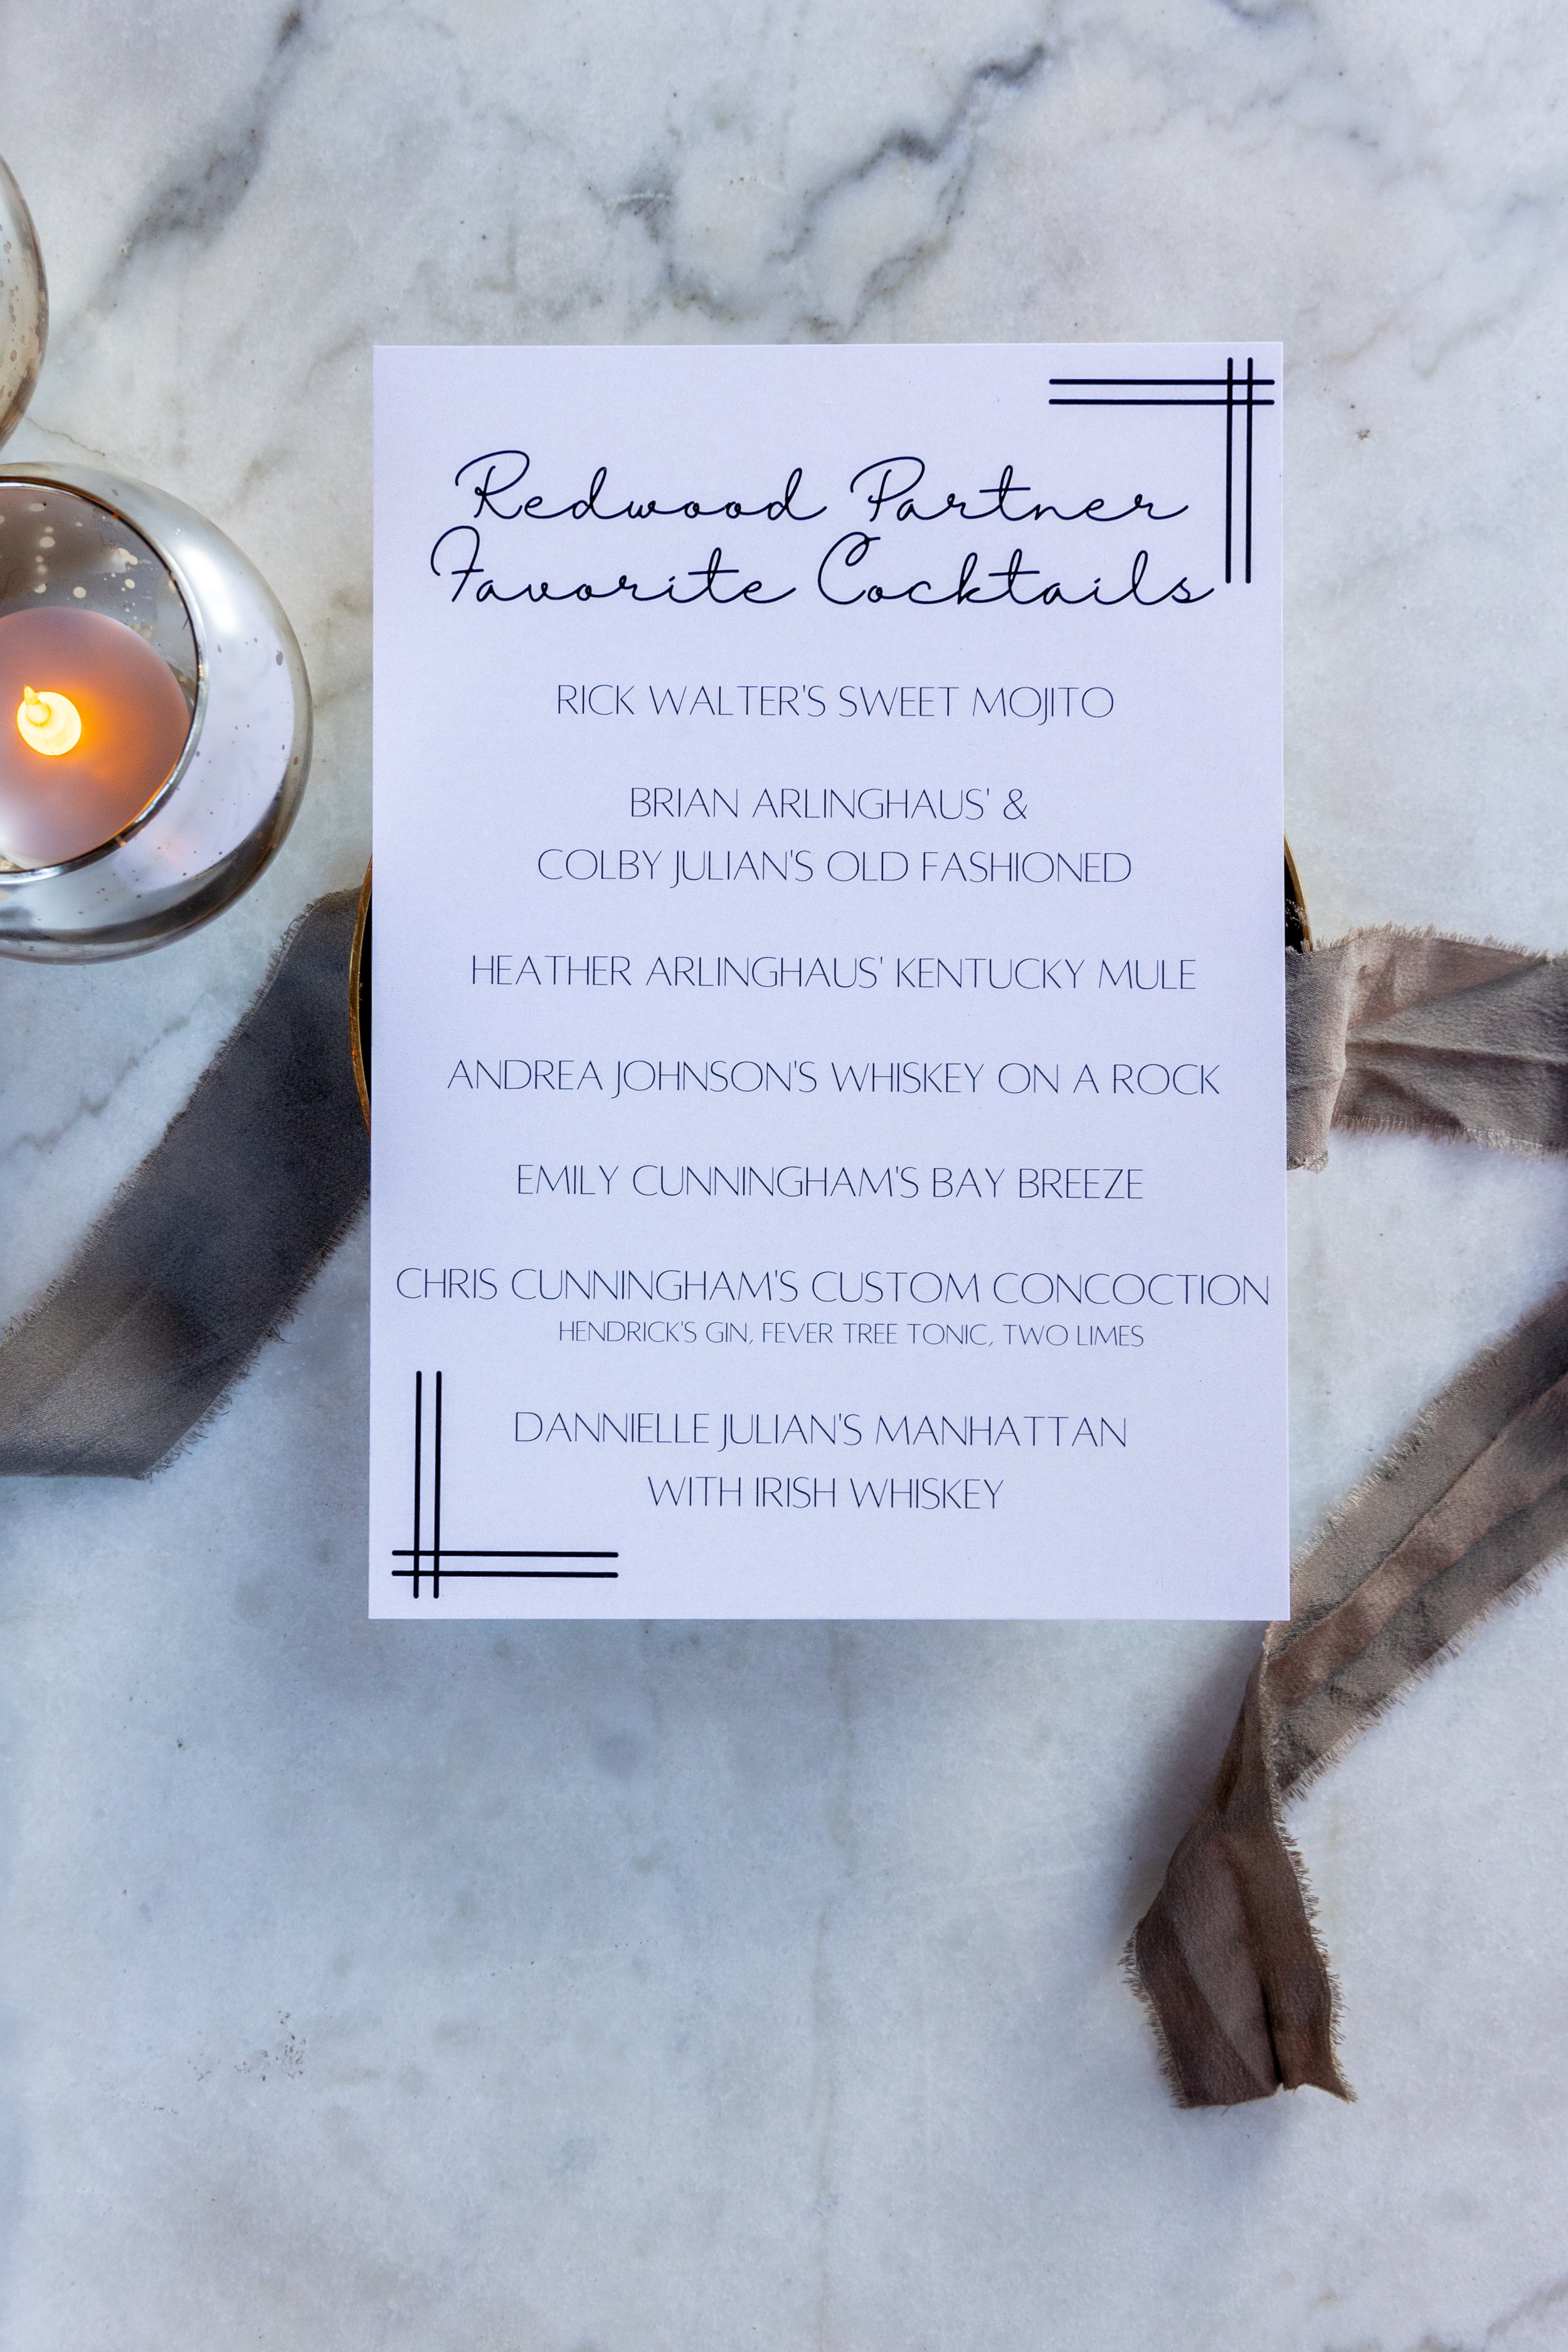 Redwood Partner
Favorite Cocktails
RICK WALTER'S SWEET MOJITO
BRIAN ARLINGHAUS' &
COLBY JULIAN'S OLD FASHIONED
HEATHER ARLINGHAUS' KENTUCKY MULE
ANDREA JOHNSON'S WHISKEY ON A ROCK
EMILY CUNNINGHAM'S BAY BREEZE
CHRIS CUNNINGHAM'S CUSTOM CONCOCTION
HENDRICK'S GIN, FEVER TREE TONIC, TWO LIMES
DANNIELLE JULIAN'S MANHATTAN
WITH IRISH WHISKEY